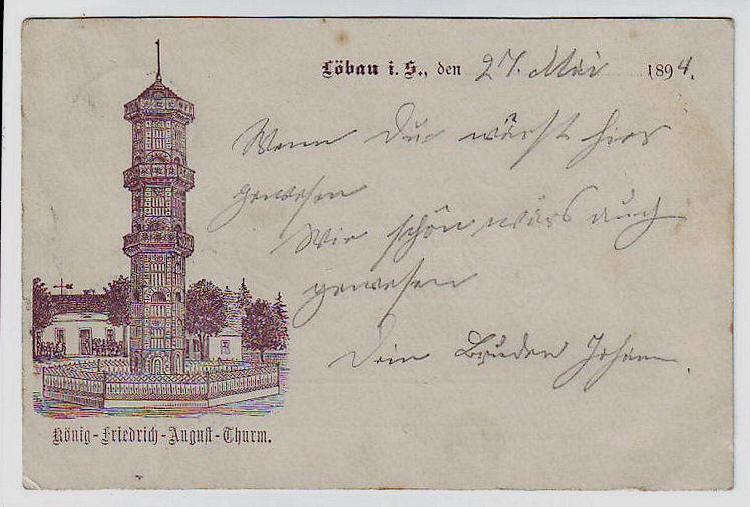 Löbau i. S., den 27. Mai 1894.
Wenn Du wärst hier
gewesen
Wie schön wärs auch
gewesen
Dein Bruder Johann.
König-Friedrich-August-Thurm.